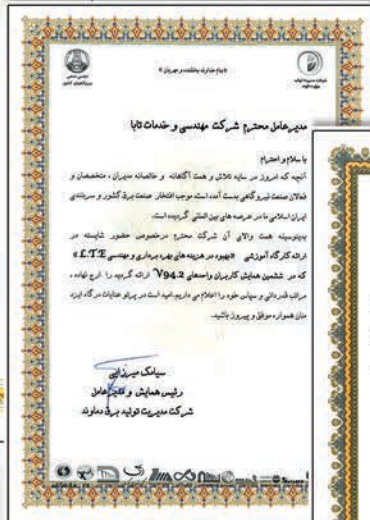 «بنام خداوند بخشنده و مهربان»
مدیرعامل محترم شرکت مهندسی و خدمات تابا
با سلام و احترام
آنچه که امروز در سایه تلاش و همت آگاهانه و خالصانه مدیران، متخصصان و
فعالان صنعت نیروگاهی بدست آمده است، موجب افتخار صنعت برق کشور و سربلندی
ایران اسلامی ما در عرصه های بین المللی گردیده است.
بدینوسیله همت والای آن شرکت محترم درخصوص حضور شایسته در
ارائه کارگاه آموزشی «بهبود در هزینه های بهره برداری و مهندسی L.T.E»
که در ششمین همایش کاربران واحدهای V94.2 ارائه گردید را ارج نهاده،
مراتب قدردانی و سپاس خود را اعلام می داریم. امید است در پرتو عنایات درگاه ایزد
منان همواره موفق و پیروز باشید.
سیامک میرزایی
رئیس همایش و مدیرعامل
شرکت مدیریت تولید برق دماوند